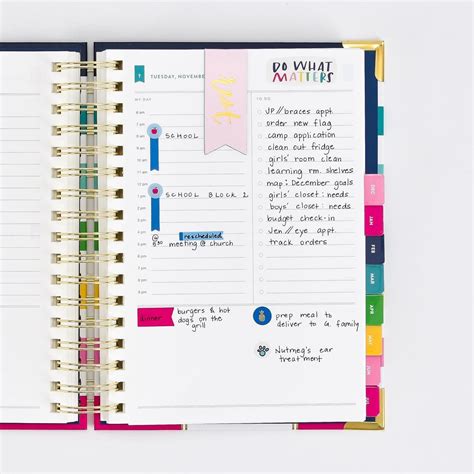 DO WHAT
MATTERS
TUESDAY, NOVEMBER
MY DAY
TO DO
JP//braces appt.
order new flag
camp application
clean out fridge
girls' room clean
learning rm. shelves
map: December goals
girls' closet: needs
boys' closet: needs
budget check-in
Jen//eye appt.
track orders
SCHOOL
SCHOOL BLOCK 2
rescheduled
meeting @ church
dinner
burgers & hot
dogs on the
grill
prep meal to
deliver to G. family
Nutmeg's ear
treatment
DEC
JAN
FEB
MAR
APR
MAY
JUN